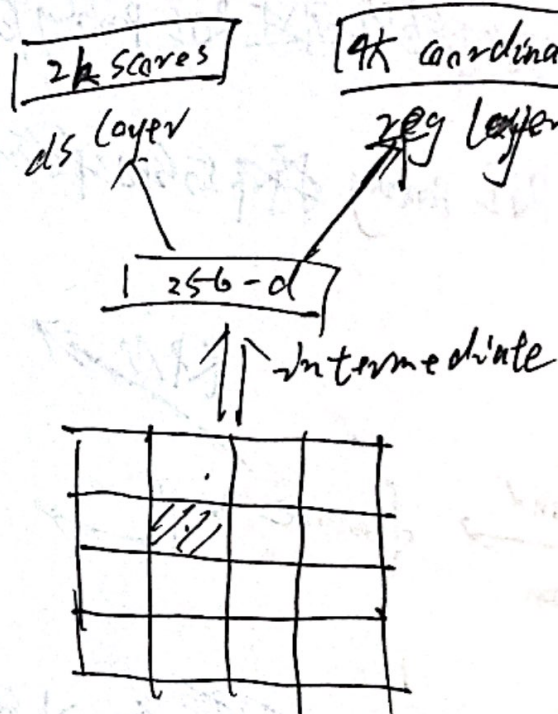 2k scores
4k coordina
cls layer
reg layer
256-d
intermediate